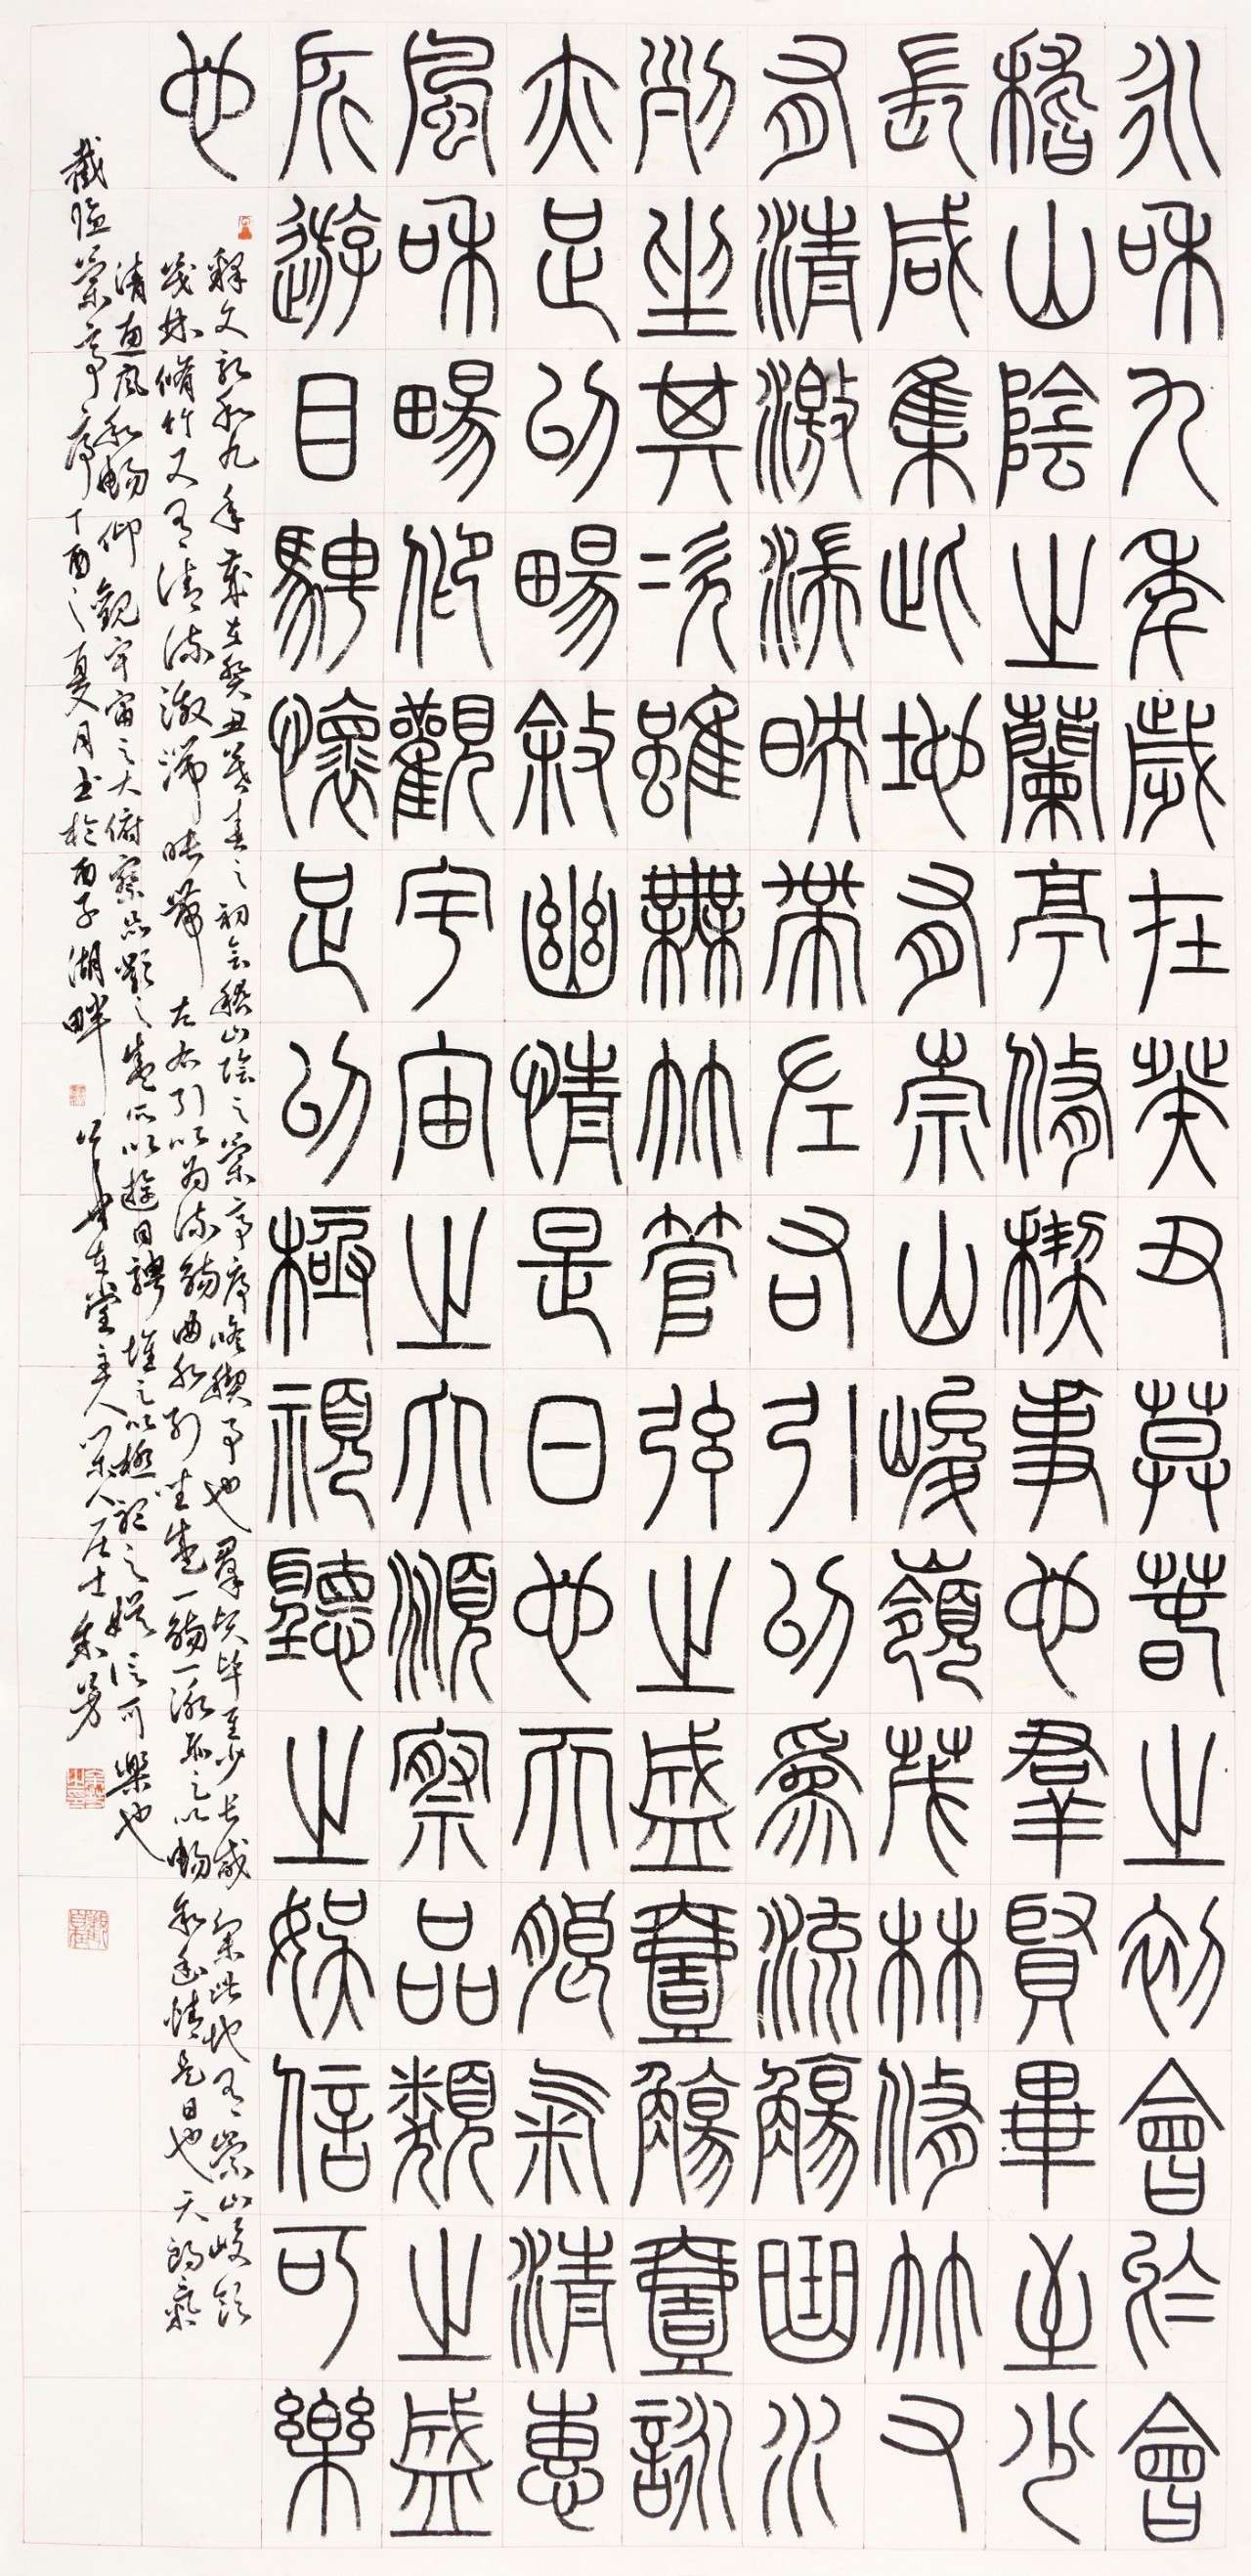 永和九年歲在癸丑莫春之初會於會
稽山陰之蘭亭脩禊事也群賢畢至少
長咸集此地有崇山峻嶺茂林脩竹又
有清激湍映帶左右引以為流觴曲水
列坐其次雖無竹管弦之盛壹觴壹詠
亦足以暢敘幽情是日也天朗氣清惠
風和暢仰觀宇宙之大俯察品類之盛
所遊目騁懷足以極視聽之娛信可樂
也
釋文永和九年歲在癸丑暮春之初會稽山陰之蘭亭序脩禊事也群賢畢至少長咸集此地有崇山峻領
茂林脩竹又有清流激湍映帶左右引以為流觴曲水列坐盛一觴一詠亦足以暢敘幽情是日也天朗氣
清惠風和暢仰觀宇宙之大俯察品類之盛所以遊目騁懷之以極視之娛信可樂也
截臨蘭亭序丁酉之夏月書於南子湖畔 堂主人 居士朱芳